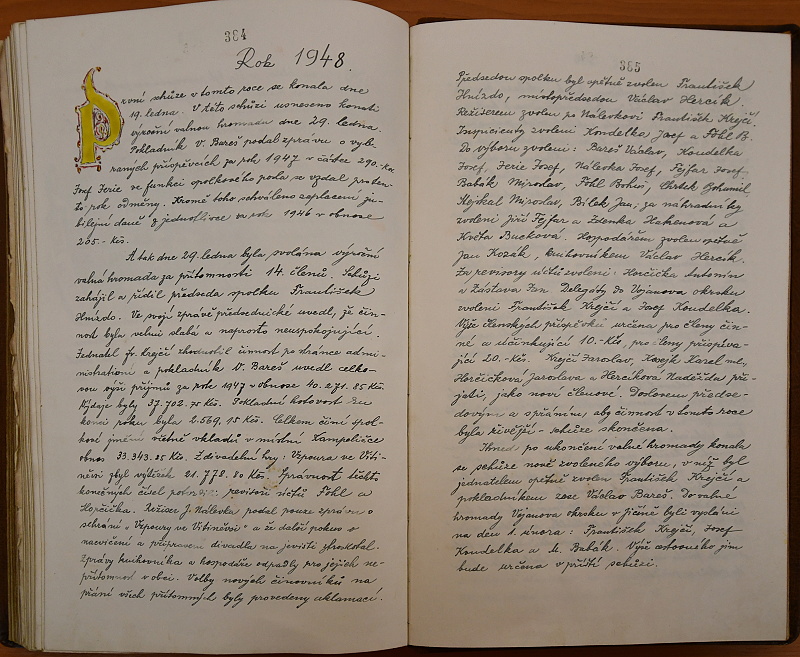 364
Rok 1948.
První schůze v tomto roce se konala dne
19. ledna. V této schůzi usneseno konati
výroční valnou hromadu dne 29. ledna.
Pokladník V. Bareš podal zprávu o vyb-
raných příspěvcích za rok 1947 v částce 290.- Kčs.
Josef Jerie se funkce spolkového posla se vzdal pro ten-
to rok odměny. Kromě toho schváleno zaplacení ju-
bilejní daně z jednotlivce za rok 1946 v obnose
205.- Kčs.
A tak dne 29. ledna byla svolána výroční
valná hromada za přítomnosti 14. členů. Schůzi
zahájil a řídil předseda spolku František
Hnízdo. Ve svojí zprávě předsednické uvedl, že čin-
nost byla velmi slabá a naprosto neuspokojující.
Jednatel Fr. Krejčí zhodnotil činnost po stránce admi-
nistrativní a pokladník V. Bareš uvedl celko-
vou výši příjmů za rok 1947 v obnose 40.271.85 Kčs.
Výdaje byly 37.702.70 Kčs. Pokladní hotovost ku
konci roku byla 2.569,15 Kčs. Celkem činí spol-
kové jmění včetně vkladů v místní Kampeličce
obnos 33.343.85 Kčs. Z divadelní hry: Vzpoura ve Viti-
něvsi zbyl výtěžek 21.778.80 Kčs. Správnost těchto
konečných čísel revisoři účtů Föhl a
Horčička. Režiser J. Nálevka podal pouze zprávu o
sehrání "Vzpoury ve Vitiněvsi" a že další pokus o
nacvičení a připravení divadla na jevišti ztroskotal.
Zprávy knihovníka a hospodáře odpadly pro jejich ne-
přítomnost v obci. Volby nových činovníků na
přání všech přítomných byly provedeny aklamací.
365
Předsedou spolku byl opětně zvolen František
Hnízdo, místopředsedou Václav Hercík.
Režiserem zvolen po Nálevkovi František Krejčí.
Inspicienty zvoleni Koudelka Josef a Föhl B.
Do výboru zvoleni: Bareš Václav, Koudelka
Josef, Jerie Josef, Nálevka Josef, Fejfar Josef,
Babák Miroslav, Föhl Bohuš, Chrtek Bohumil,
Hejskal Miroslav, Bílek Jan; za náhradníky
zvoleni Jiří Fejfar a Zdenka Hakenová a
Květa Bucková. Hospodářem zvolen opětně
Jan Kozák, knihovníkem Václav Hercík.
Za revisory účtů zvoleni: Horčička Antonín
a Zástava Jan. Delegáty do Vojanova okrsku
zvoleni František Krejčí a Josef Koudelka.
Výše členských příspěvků určena pro členy čin-
né a účinkující 10. Kčs, pro členy přispíva-
jící 20.- Kčs. Krejčí Jaroslav, Karel ml.,
Horčičková Jaroslava a Hercíková Naděžda při-
jati, jako noví členové. Doslovem předse-
dovým a přáním, aby činnost v tomto roce
byla živější - schůze skončena.
Ihned po ukončení valné hromady konala
se schůze nově zvoleného výboru, v níž byl
jednatelem opětně zvolen František Krejčí a
pokladníkem zase Václav Bareš. Do valné
hromady Vojanova okrsku v Jičíně byli vysláni
na den 1. února: František Krejčí, Josef
Koudelka a M. Babák. Výše cestovného jim
bude určena v příští schůzi.